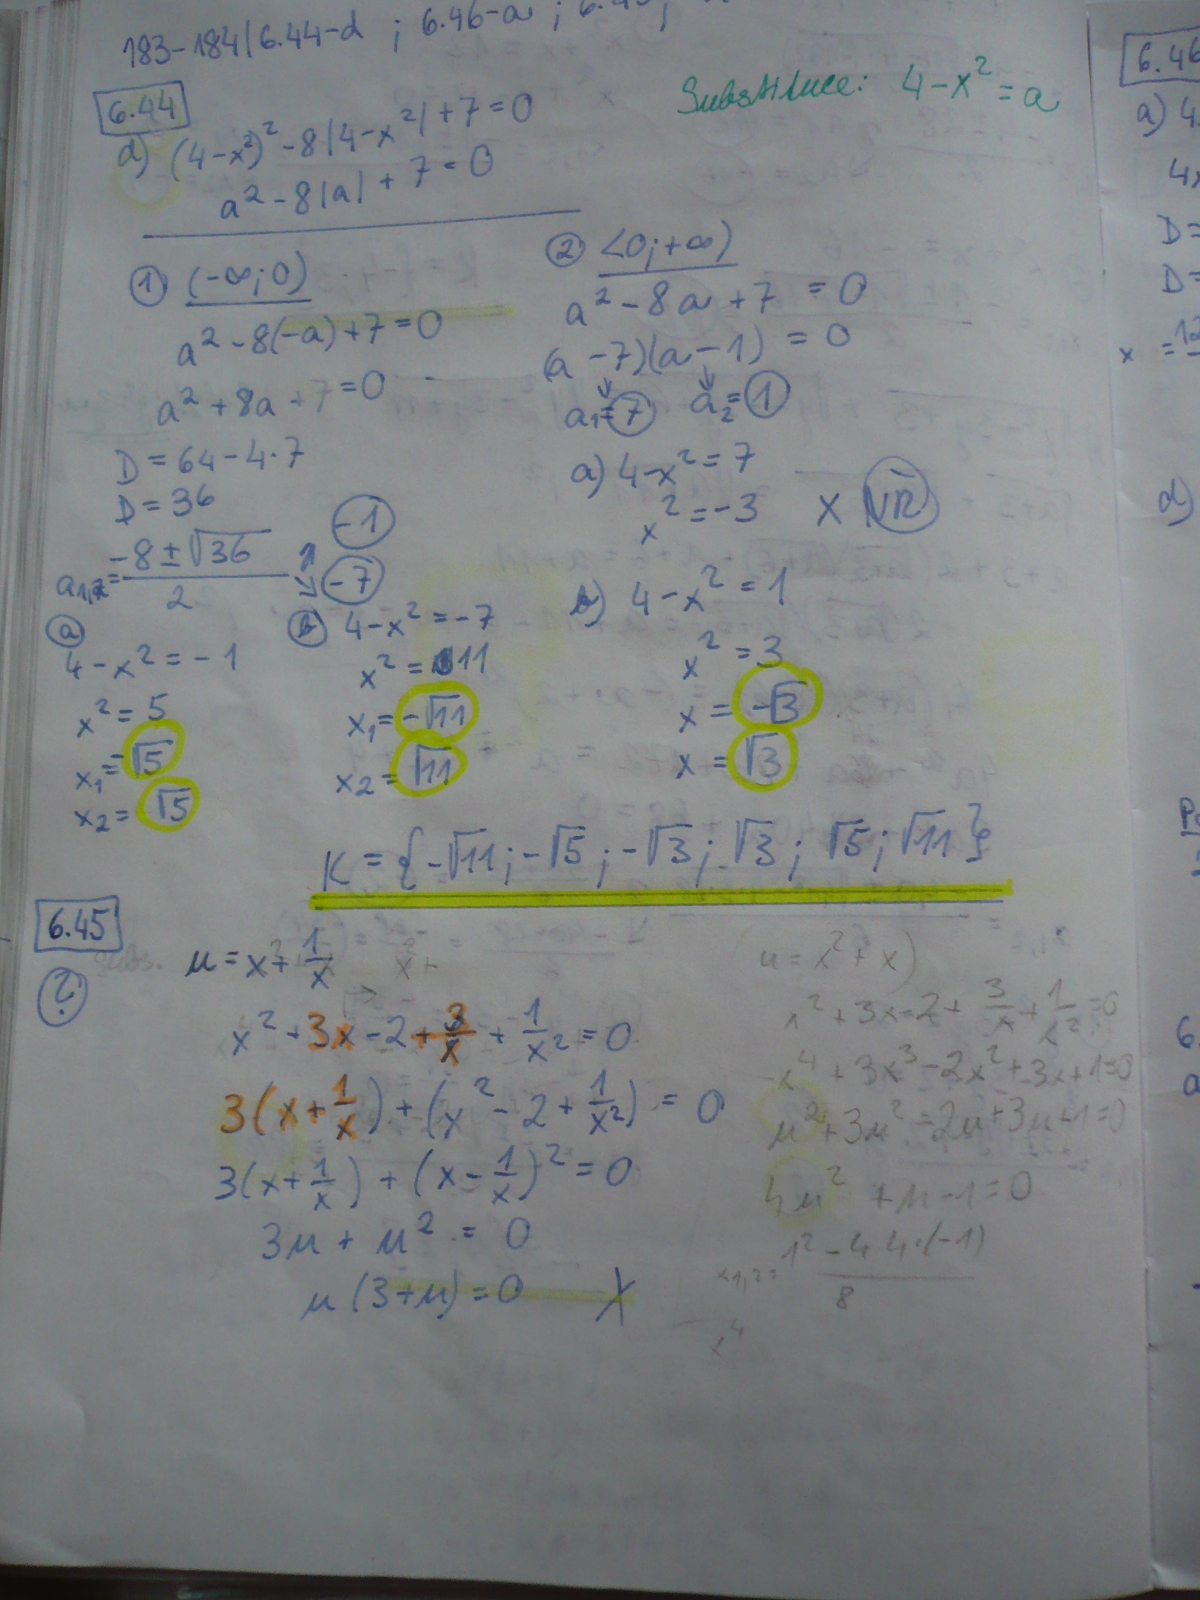 183-184/6.44-d ; 6.46-a ;
Substituce: 4-x² = a
6.44
d) (4-x²)² - 8|4-x²| + 7 = 0
a² - 8|a| + 7 = 0
① (-∞; 0)
a² - 8(-a) + 7 = 0
a² + 8a + 7 = 0
D = 64 - 4·7
D = 36
a₁,₂ = (-8 ± √36)/2
-1
-7
ⓐ
4 - x² = -1
x² = 5
x₁ = -√5
x₂ = √5
ⓑ 4 - x² = -7
x² = 11
x₁ = -√11
x₂ = √11
② <0; +∞)
a² - 8a + 7 = 0
(a - 7)(a - 1) = 0
a₁ = 7 a₂ = 1
a) 4 - x² = 7
x² = -3 X NŘ
b) 4 - x² = 1
x² = 3
x = -√3
x = √3
K = {-√11; -√5; -√3; √3; √5; √11}
6.45
?
subs.
u = x + 1/x
x² + 3x - 2 + 3/x + 1/x² = 0
3(x + 1/x) + (x² - 2 + 1/x²) = 0
3(x + 1/x) + (x - 1/x)² = 0
3u + u² = 0
u(3 + u) = 0 X
(u = x² + x)
x² + 3x - 2 + 3/x + 1/x² = 0
x⁴ + 3x³ - 2x² + 3x + 1 = 0
u² + 3u² - 2u + 3u + 1 = 0
4u² + u - 1 = 0
6.46
a) 4
4x
D =
D =
x =
d)
6.
a